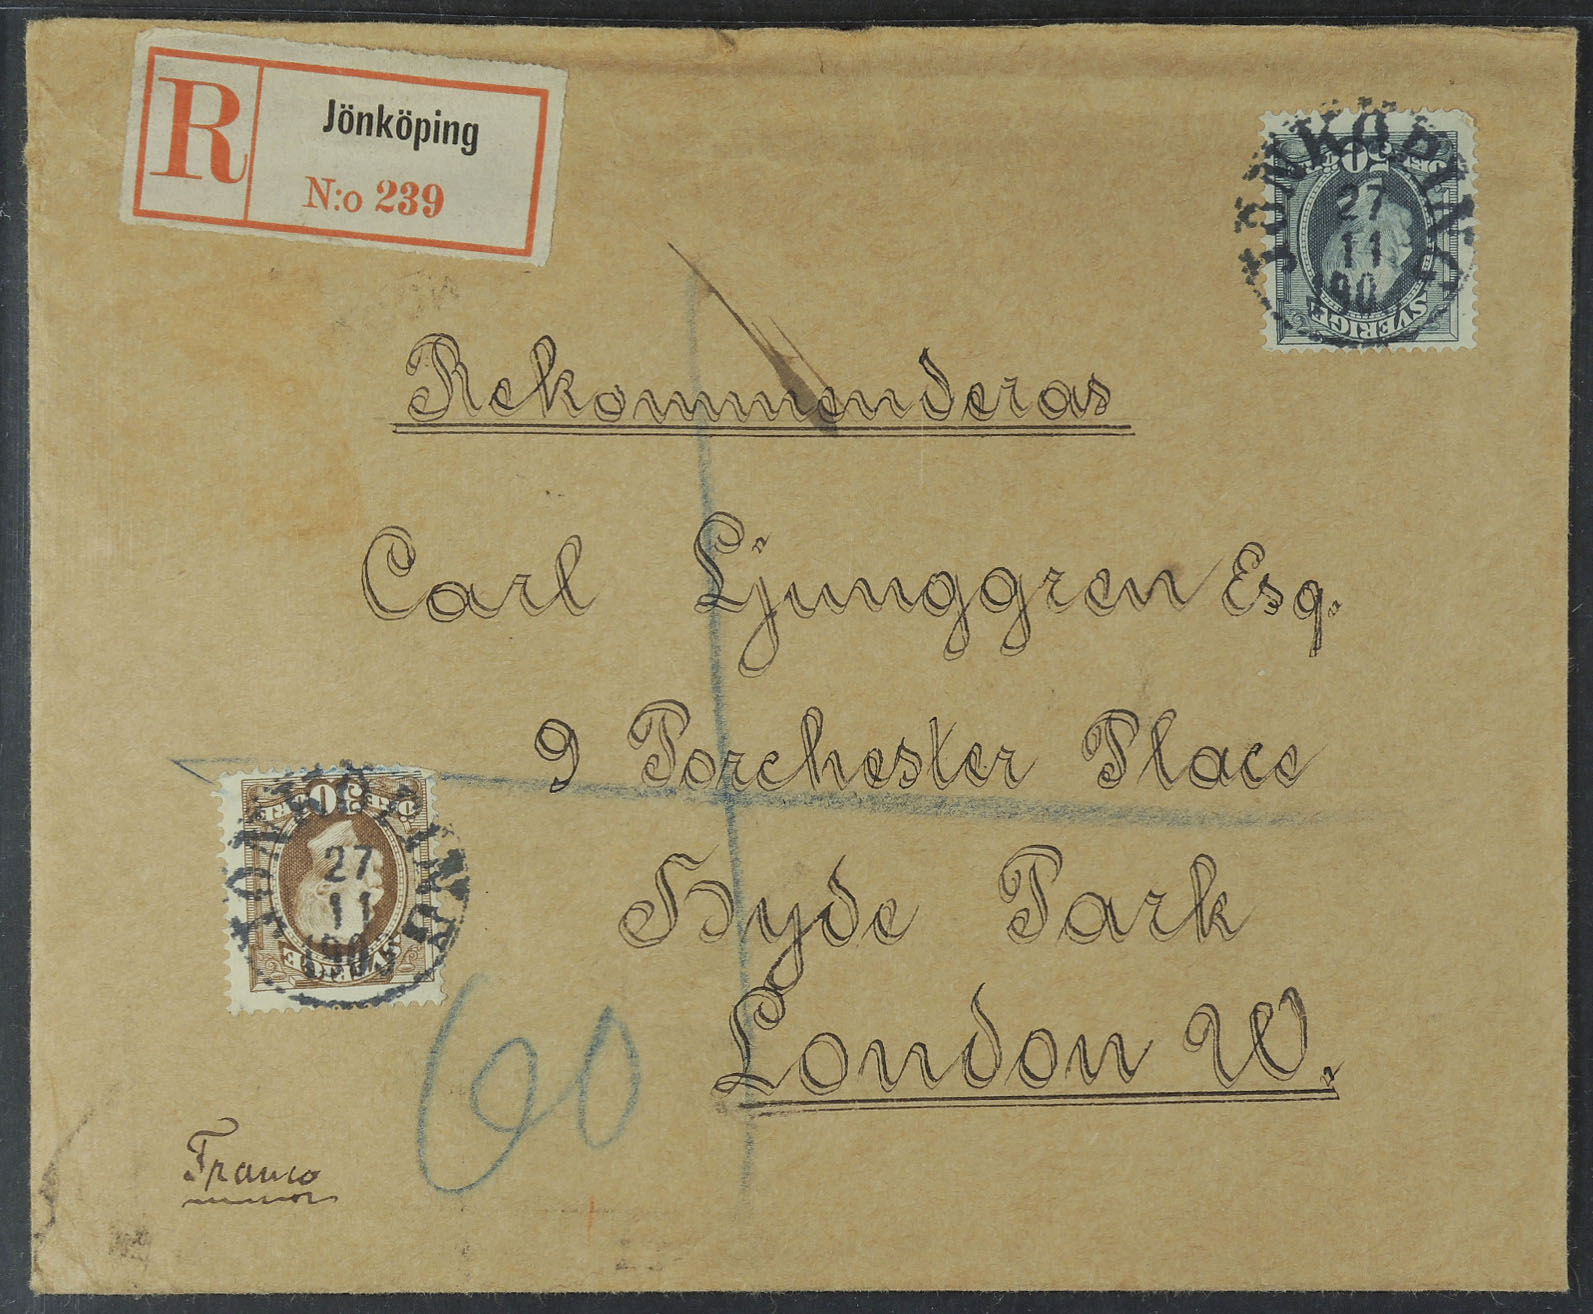 R Jönköping
N:o 239
JÖNKÖPING
27
11
190
50
SVERIGE
Rekommenderas
Carl Ljunggren Esq.
9 Porchester Place
Hyde Park
London W.
JÖNKÖPING
27
11
1905
30
SVERIGE
60
Franco